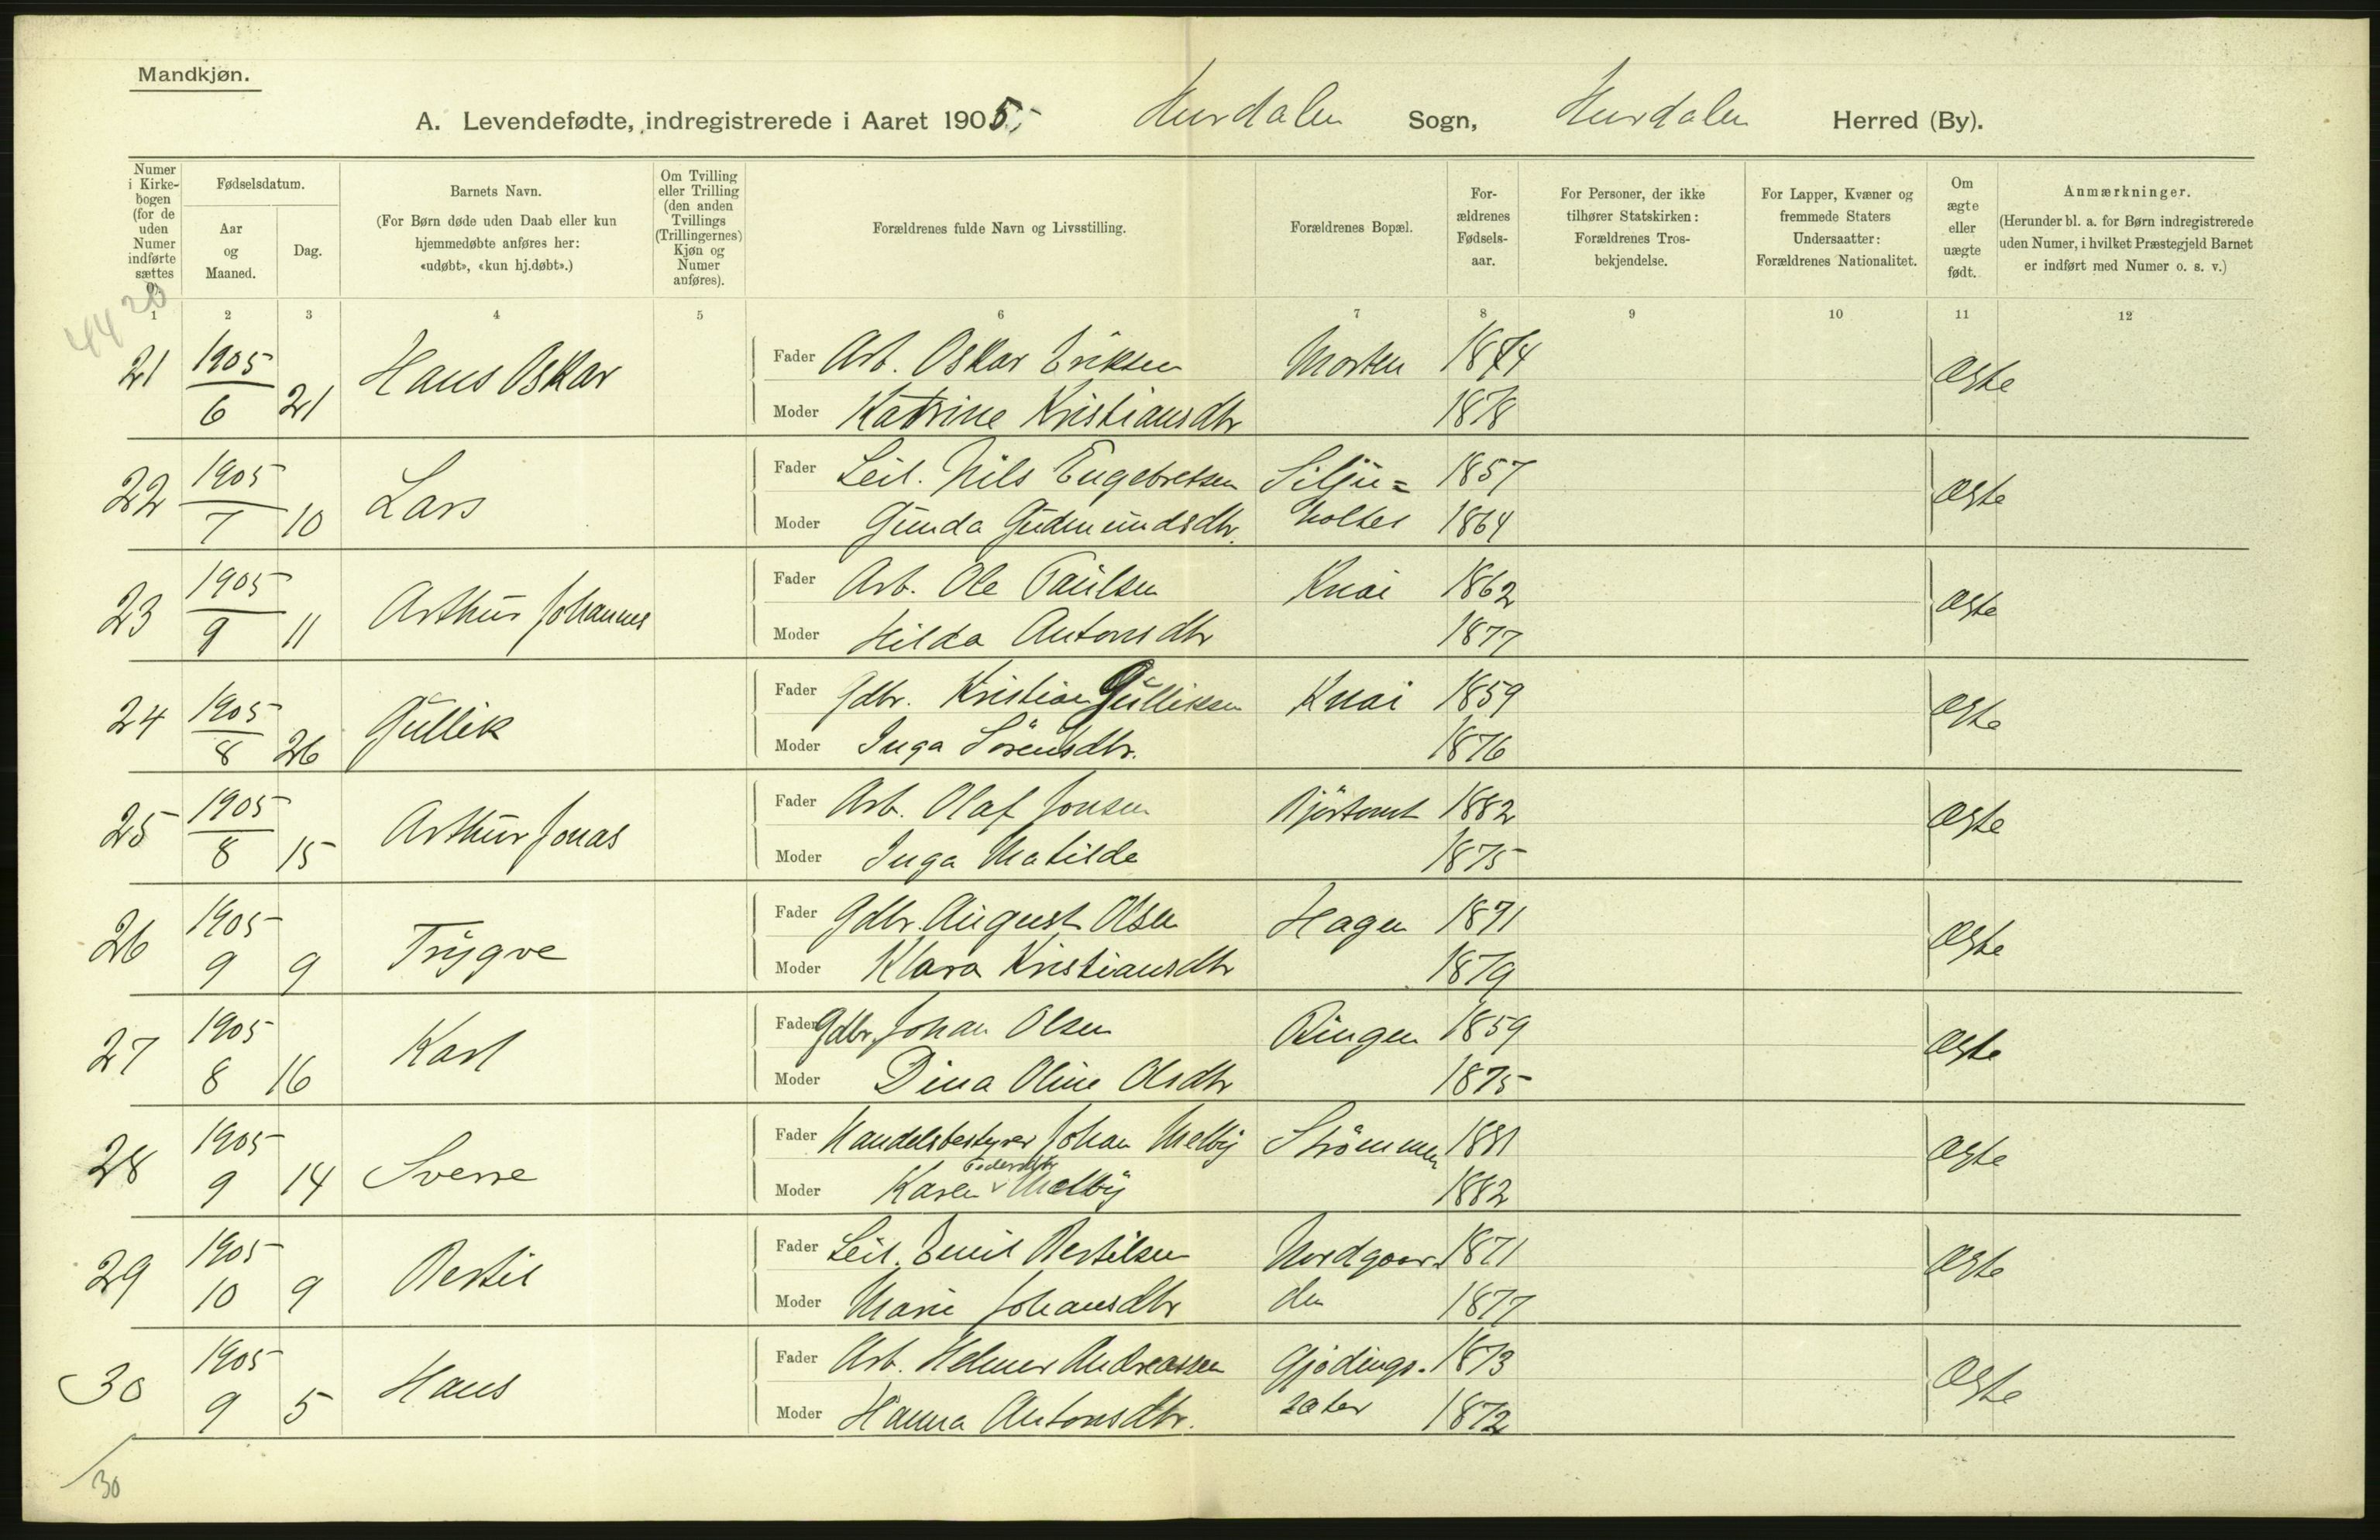 Mandkjøn.
A. Levendefødte, indregistrerede i Aaret 1905, Hurdalen Sogn, Hurdalen Herred (By).
Numer i Kirkebogen (for de uden Numer indførte sættes 0).
Fødselsdatum.
Aar og Maaned.
Dag.
Barnets Navn.
(For Børn døde uden Daab eller kun hjemmedøbte anføres her: «udøbt», «kun hj.døbt».)
Om Tvilling eller Trilling (den anden Tvillings (Trillingernes) Kjøn og Numer anføres).
Forældrenes fulde Navn og Livsstilling.
Forældrenes Bopæl.
Forældrenes Fødselsaar.
For Personer, der ikke tilhører Statskirken: Forældrenes Trosbekjendelse.
For Lapper, Kvæner og fremmede Staters Undersaatter: Forældrenes Nationalitet.
Om ægte eller uægte født.
Anmærkninger.
(Herunder bl. a. for Børn indregistrerede uden Numer, i hvilket Præstegjeld Barnet er indført med Numer o. s. v.)
44 20
1 2 3 4 5 6 7 8 9 10 11 12
21 1905 6 21 Hans Oskar Fader Arb. Oskar Eriksen Morten 1874 Ægte
Moder Katrine Kristiansdtr 1878
22 1905 7 10 Lars Fader Leil. Nils Engebretsen Silju= 1857 Ægte
Moder Gunda Gudmundsdtr. holtet 1864
23 1905 9 11 Arthur Johannes Fader Arb. Ole Paulsen Knai 1862 Ægte
Moder Hilda Antonsdtr 1877
24 1905 8 26 Gullik Fader Gdbr. Kristian Gulliksen Knai 1859 Ægte
Moder Inga Sörensdtr. 1876
25 1905 8 15 Arthur Jonas Fader Arb. Olaf Jonsen 1882 Ægte
Moder Inga Matilde 1875
26 1905 9 9 Trygve Fader Gdbr. August Olsen Hagen 1871 Ægte
Moder Klara Kristiansdtr 1879
27 1905 8 16 Karl Fader Gdbr. Johan Olsen Ringen 1859 Ægte
Moder Dina Oline Olsdtr 1875
28 1905 9 14 Sverre Fader Handelsbestyrer Johan Melby Strömmen 1881 Ægte
Moder Karen Melby 1882
29 1905 10 9 Bertil Fader Leil. Emil Bertilsen Nordgaar- 1871 Ægte
Moder Marie Johansdtr den 1877
30 1905 9 5 Hans Fader Arb. Helmer Andreassen Gjödings- 1873 Ægte
Moder Hanna Antonsdtr. 1872
30